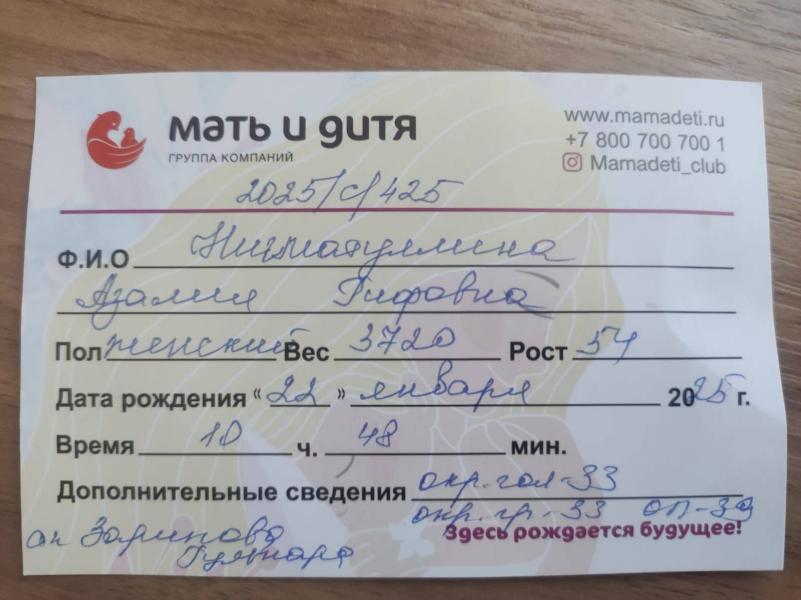 мать и дитя
ГРУППА КОМПАНИЙ
www.mamadeti.ru
+7 800 700 700 1
Mamadeti_club
2025/с/425
Ф.И.О Нигматуллина
Азалия Рифовна
Пол женский Вес 3720 Рост 54
Дата рождения “22” января 2025 г.
Время 10 ч. 48 мин.
Дополнительные сведения окр. гол-33
окр. гр-33 ОП-33
Здесь рождается будущее!
Зарипова
Гульнара